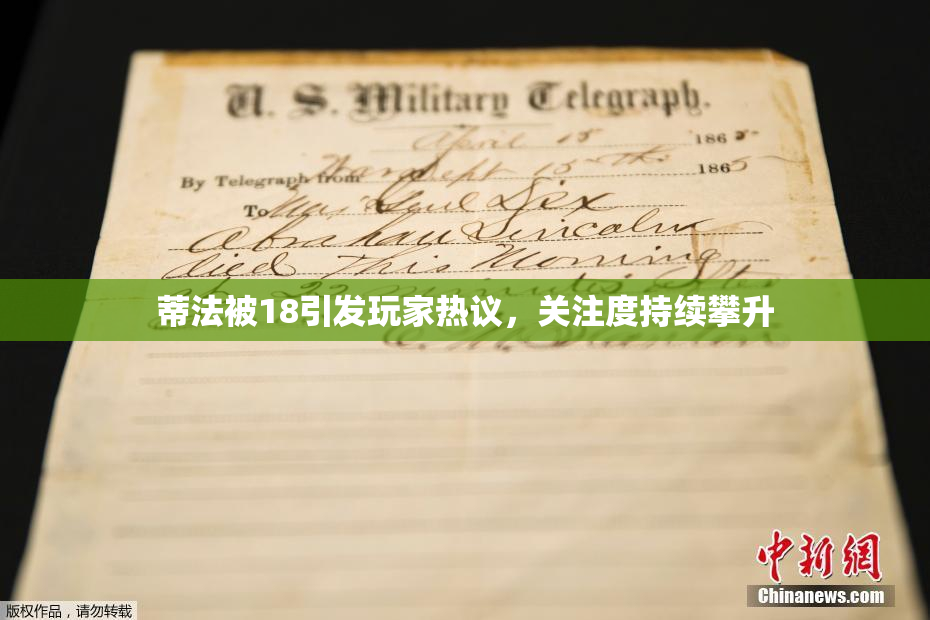 U. S. Military Telegraph.
April 15 1865
By Telegraph from War Dept 15th 1865
To Maj Genl Dix
Abraham Lincoln
died This Morning
at 22 minutes after
蒂法被18引发玩家热议，关注度持续攀升
E. M. Stanton
中新网
Chinanews.com
版权作品，请勿转载